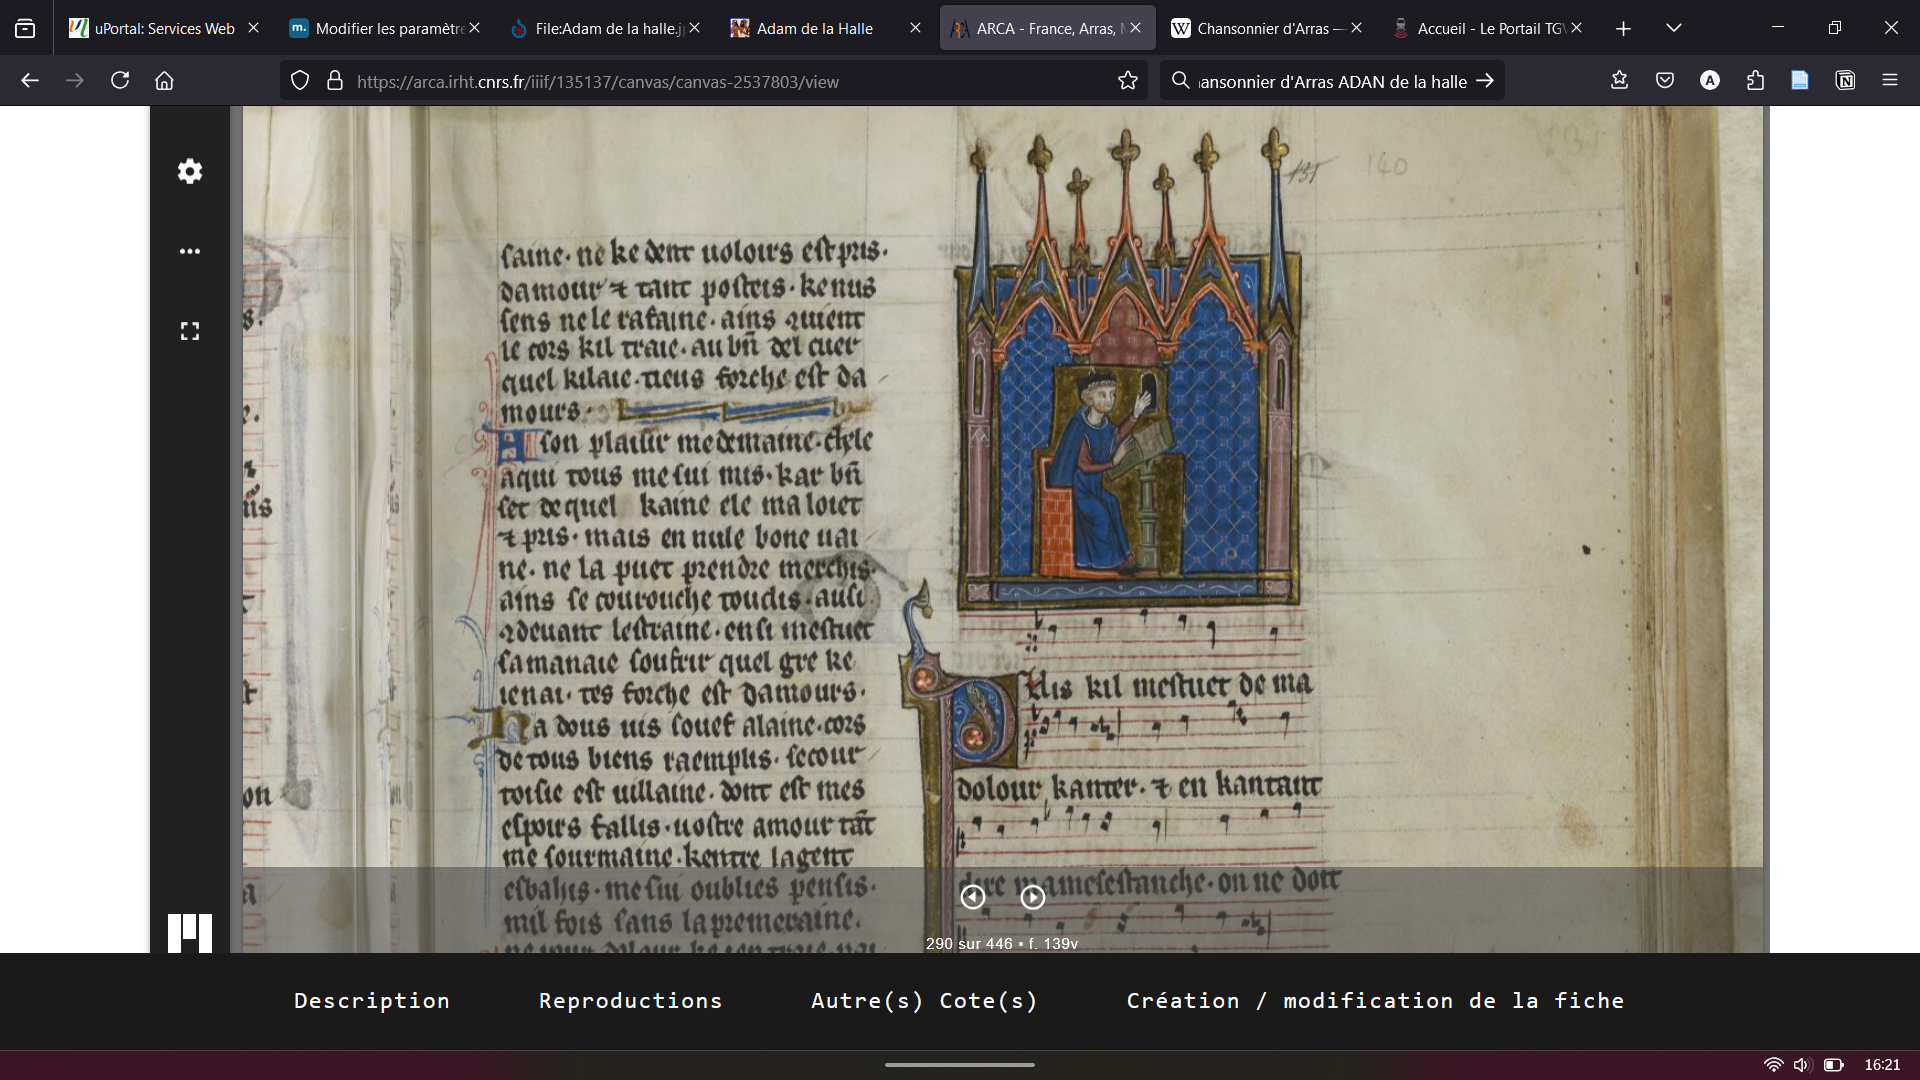 uPortal: Services Web
Modifier les paramètre
File:Adam de la halle.j
Adam de la Halle
ARCA - France, Arras,
Chansonnier d'Arras —
Accueil - Le Portail TG
https://arca.irht.cnrs.fr/iiif/135137/canvas/canvas-2537803/view
ansonnier d'Arras ADAN de la halle
131
140
saine · ne ke dent uolours est pris ·
damour ⁊ tant posteis · ke nus
sens ne le rataine · ains
le cors kil traie · au bn̄ del cuer
quel kilaie · tieus forche est da
mours ·
A son plaisir me demaine · chele
a qui tous me sui mis · kar bn̄
set de quel kaine ele ma loiet
⁊ pris · mais en nule bone uai
ne · ne la puet prendre merchis ·
ains se courouche toudis · ausi
deuant lestraine · ensi mestuet
sa manaie soufrir quel gre ke
ien ai · tes forche est damours ·
Ha dous uis souef alaine · cors
de tous biens raemplis · se cour
toisie est uillaine · dont est mes
espoirs fallis · uostre amour tāt
me sourmaine · kentre la gent
esbahis · me sui oublies pensis ·
mil fois sans la premeraine ·
Puis kil mestuet de ma
dolour kanter · ⁊ en kantant
dire mamesestanche · on ne doit
s.
on
290 sur 446 • f. 139v
Description
Reproductions
Autre(s) Cote(s)
Création / modification de la fiche
16:21